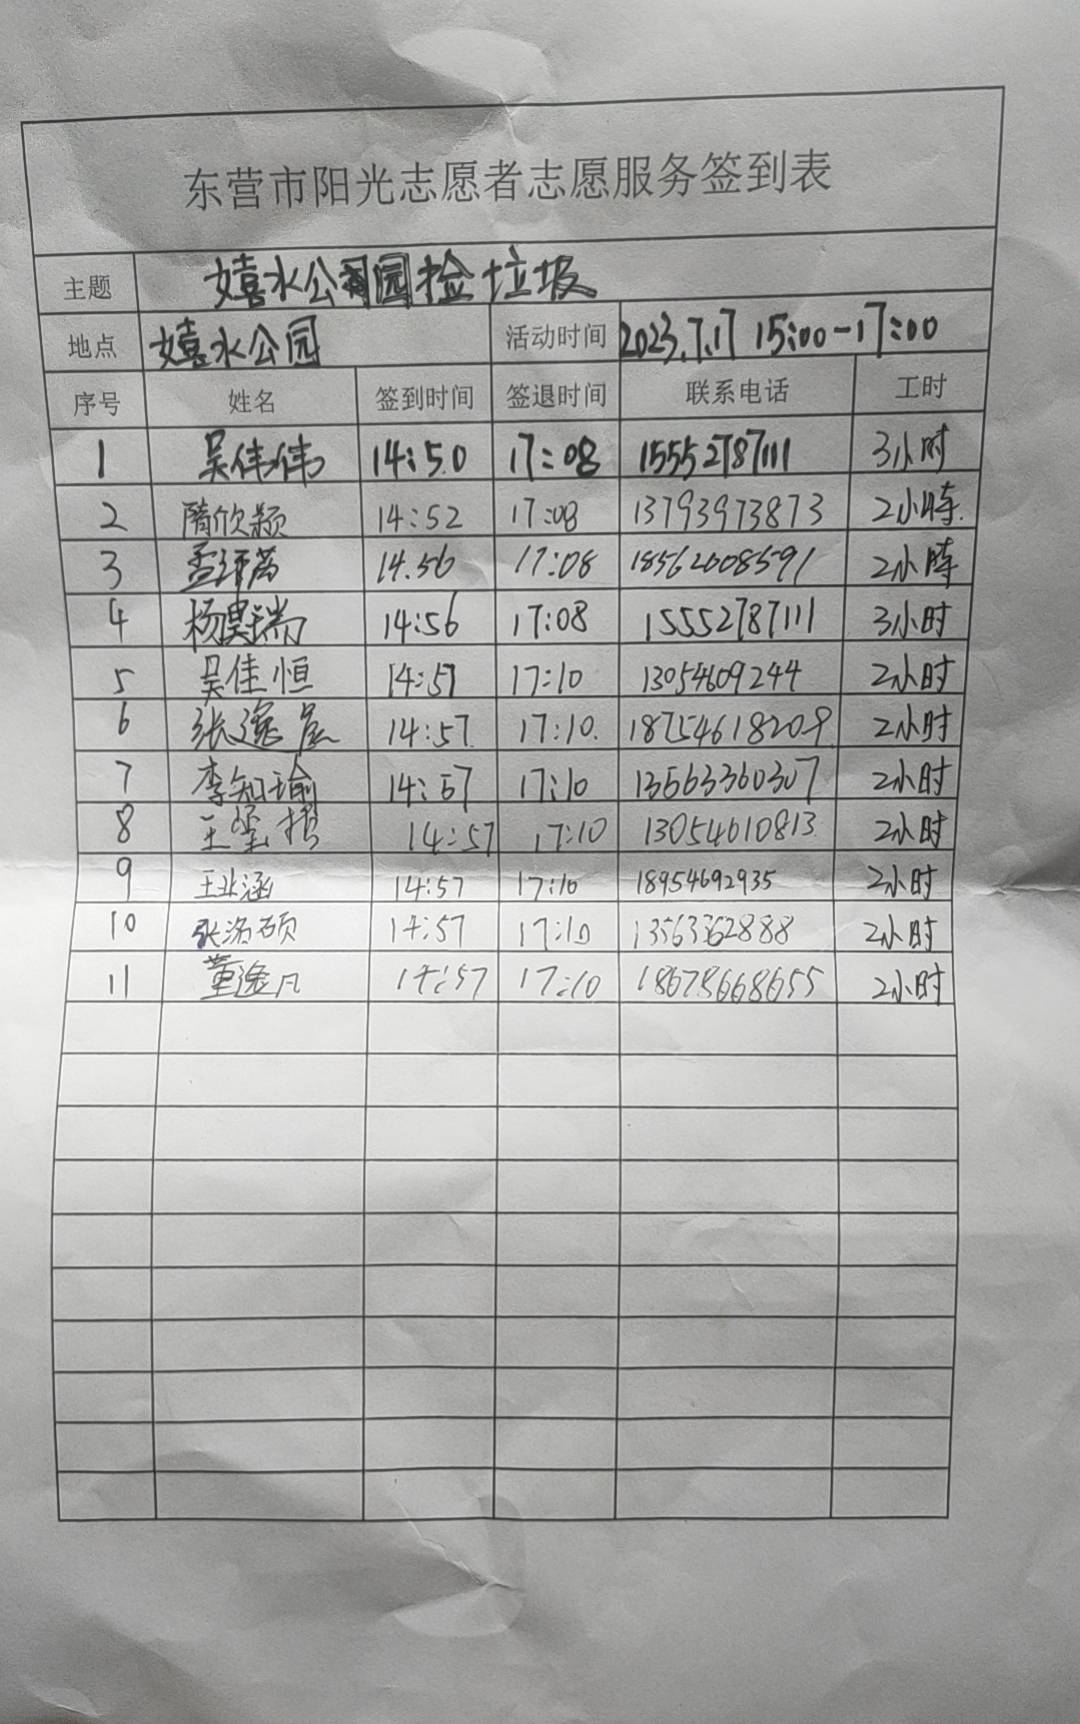 东营市阳光志愿者志愿服务签到表
主题 嬉水公园捡垃圾
地点 嬉水公园 活动时间 2023.7.17 15:00-17:00
序号 姓名 签到时间 签退时间 联系电话 工时
1 吴伟伟 14:50 17:08 15552787111 3小时
2 隋欣颖 14:52 17:08 13793973873 2小时.
3 14.56 17:08 18562008591 2小时
4 杨昊瑞 14:56 17:08 15552787111 3小时
5 吴佳恒 14:57 17:10 13054609244 2小时
6 张逸 14:57. 17:10. 18754618209 2小时
7 李知瑜 14:57 17:10 13563360307 2小时
8 王 14:57 17:10 13054610813 2小时
9 王业涵 14:57 17:10 18954692935 2小时
10 张洛硕 14:57 17:10 13563362888 2小时
11 董逸凡 14:57 17:10 18678668655 2小时